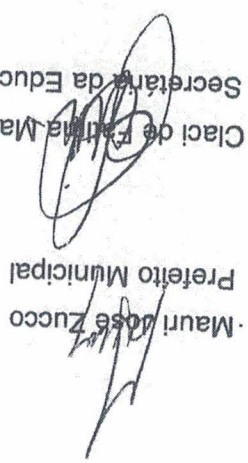 Mauri José Zucco
Prefeito Municipal
Claci de Fatima Ma
Secretária da Educ